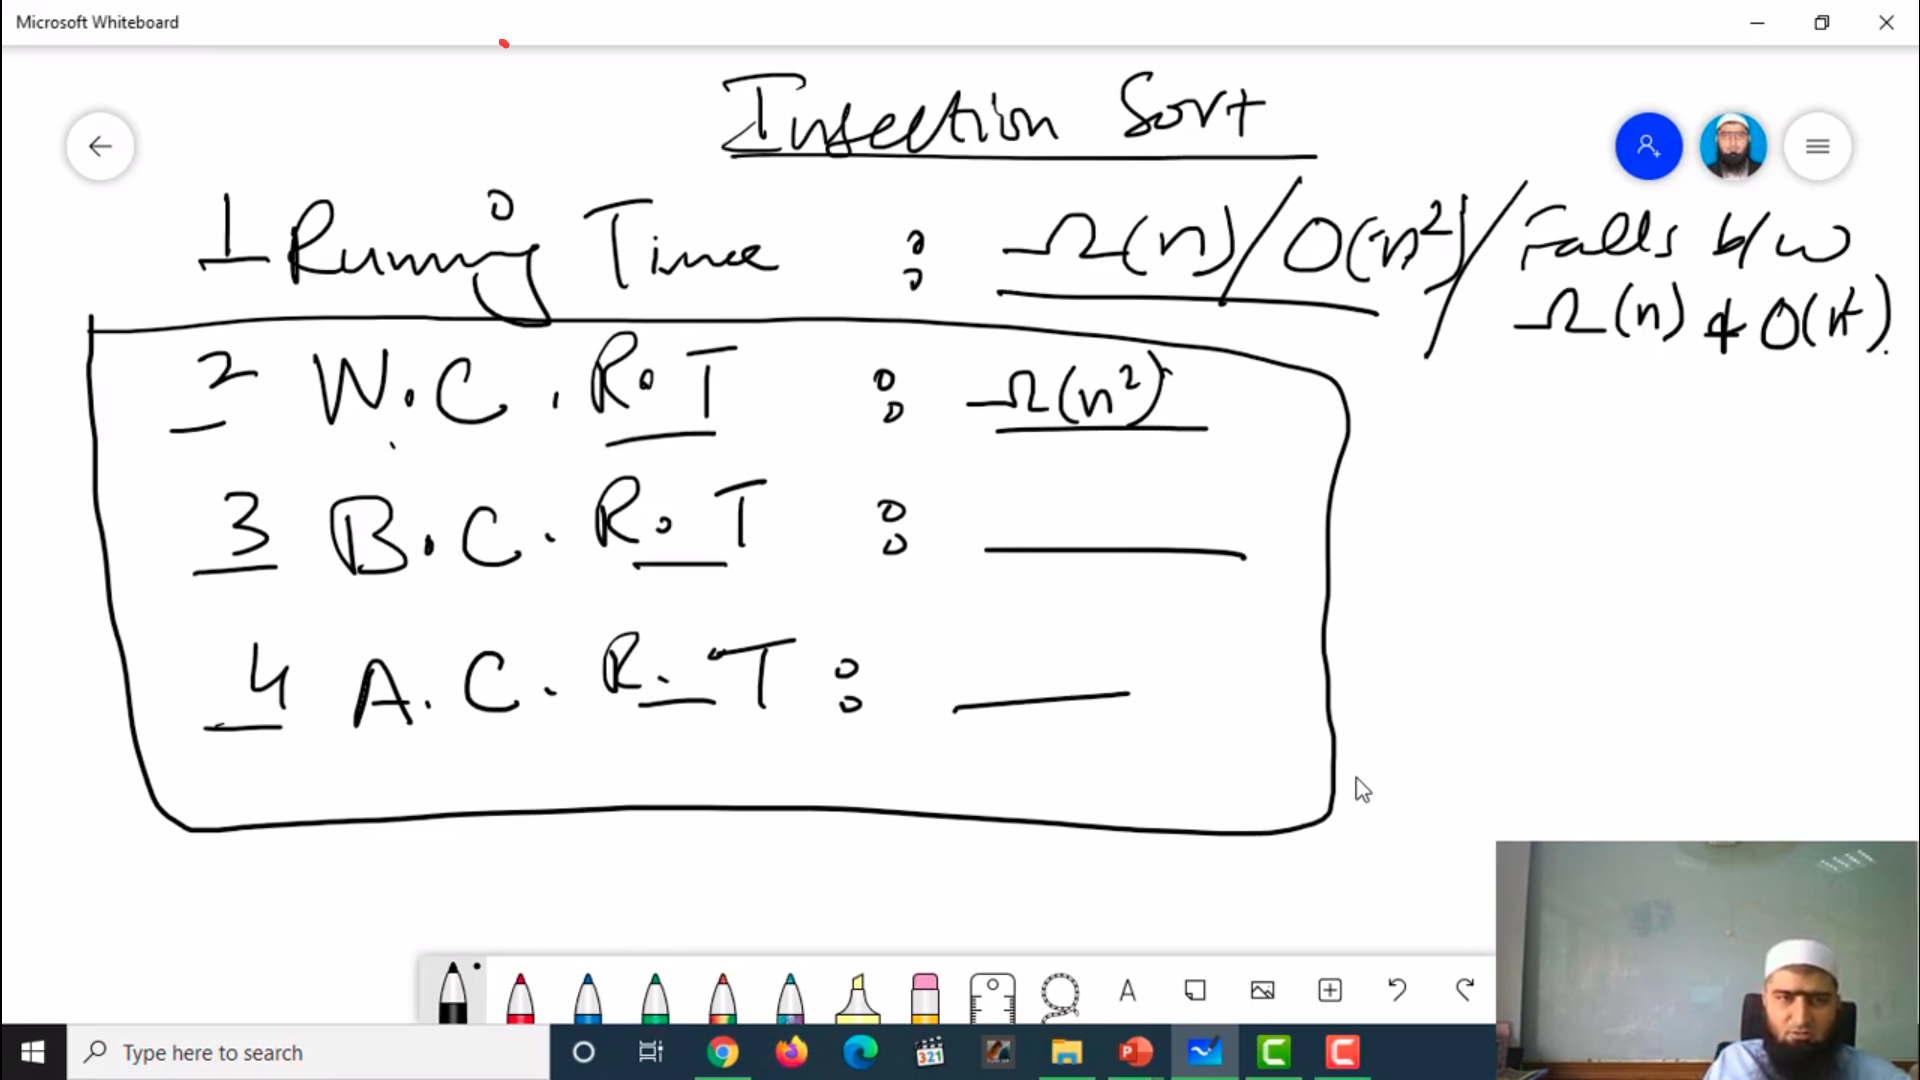 Microsoft Whiteboard
Insertion Sort
1 Running Time : Ω(n) / O(n²) / Falls b/w
Ω(n) & O(n²).
2 W.C.R.T : Ω(n²)
3 B.C.R.T :
4 A.C.R.T :
A
321
Type here to search